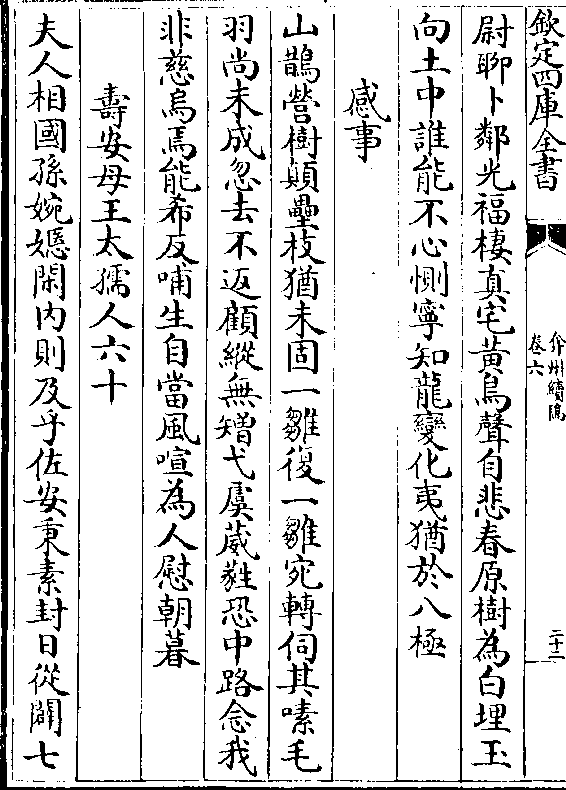 欽定四庫全書
弇州續稿
卷六
二十二
尉聊卜鄰光福棲真宅黃鳥聲自悲春原樹為白埋玉
向土中誰能不心惻寧知龍變化夷猶於八極
感事
山鵲營樹顛壘枝猶未固一雛復一雛宛轉伺其嗉毛
羽尚未成忽去不返顧縱無矰弋虞葳蕤恐中路念我
非慈烏焉能希反哺生自當風喧為人慰朝暮
壽安母王太孺人六十
夫人相國孫婉嫕閑內則及乎佐安秉素封日從闢七